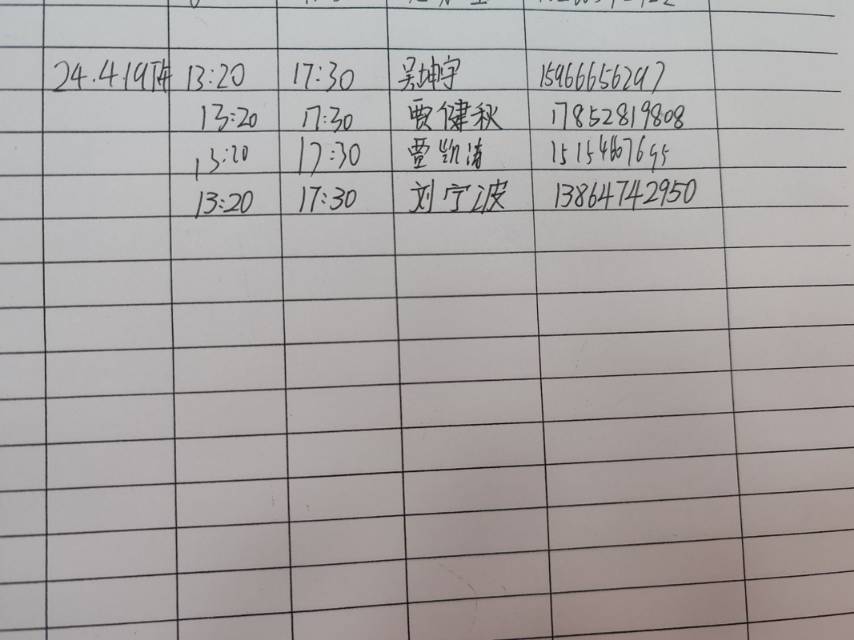 24.4.19下午 13:20 17:30 吴坤宇 15966656297
13:20 17:30 贾健秋 17852819808
13:20 17:30 贾凯涛
13:20 17:30 刘宁波 13864742950